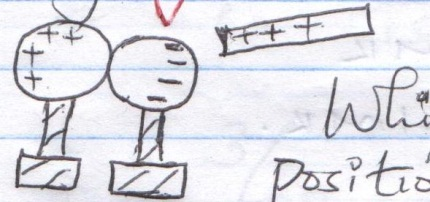 ++
+
+
+++
Whi
positio